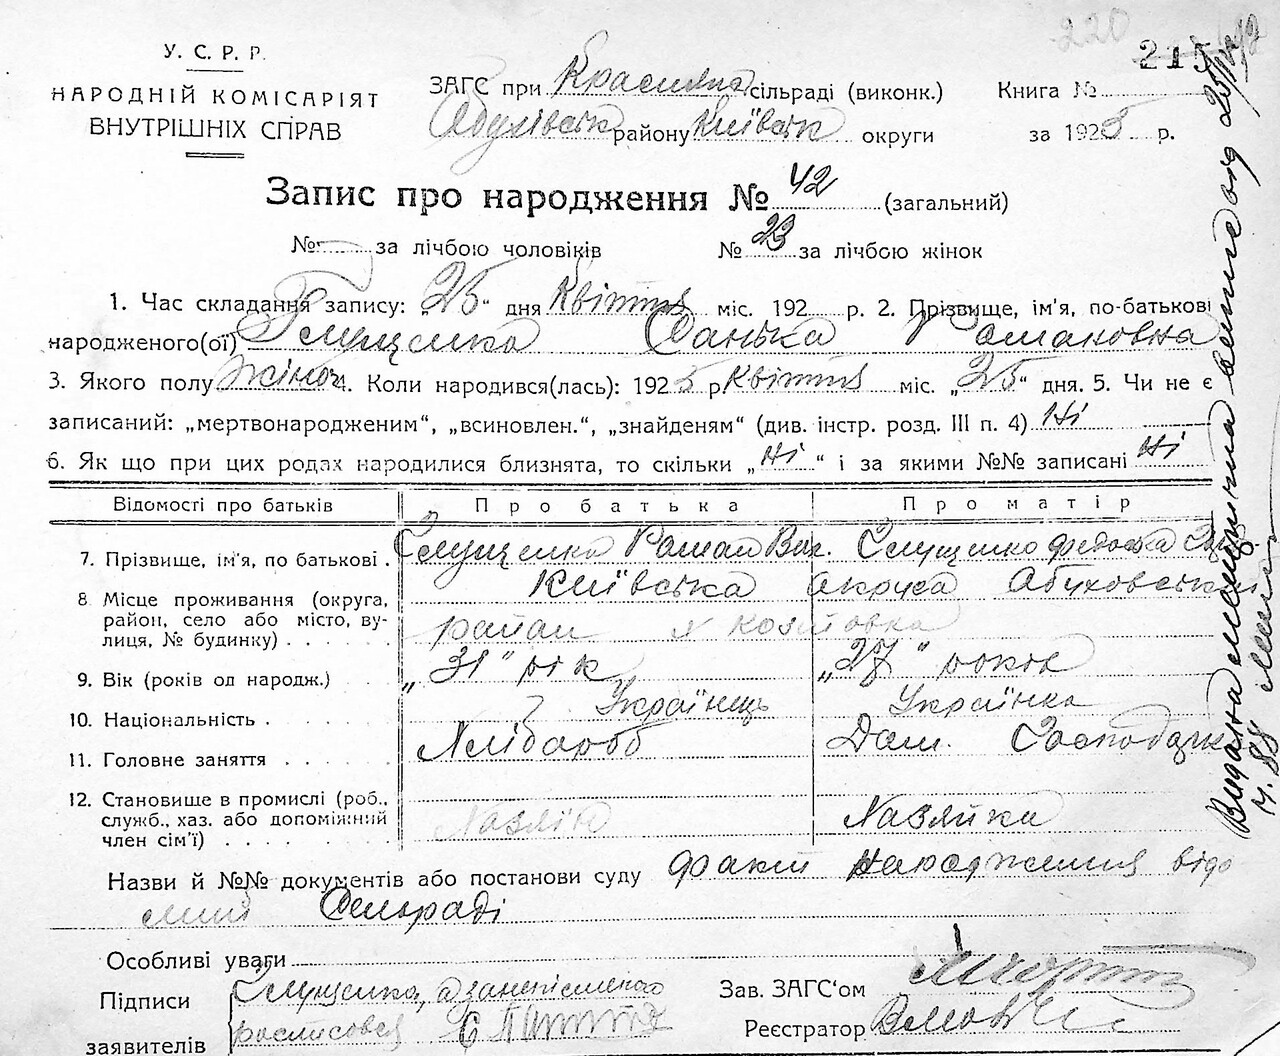 220
215
У. С. Р. Р.
НАРОДНІЙ КОМІСАРІЯТ
ВНУТРІШНІХ СПРАВ
ЗАГС при сільраді (виконк.)
району Київськ округи
Книга №
за 1925 р.
Запис про народження № 42 (загальний)
№ за лічбою чоловіків № 23 за лічбою жінок
1. Час складання запису: „25“ дня Квітня міс. 192 р. 2. Прізвище, ім'я, по-батькові
народженого(ої) Глущенко Данька Романовна
3. Якого полу Жіноч 4. Коли народився(лась): 1925 р Квітня міс. „25“ дня. 5. Чи не є
записаний: „мертвонародженим“, „всиновлен.“, „знайденям“ (див. інстр. розд. III п. 4) Ні
6. Як що при цих родах народилися близнята, то скільки „Ні“ і за якими №№ записані Ні
Відомості про батьків Про батька Про матір
7. Прізвище, ім'я, по батькові . Глущенко Роман Глущенко Федоська
8 Місце проживання (округа, район, село або місто, вулиця, № будинку) . . . . Київська округа Абуховський
район х Козіївка
9. Вік (років од народж.) „31“ рік „27“ років
10. Національність . . . . . . Українець Українка
11. Головне заняття . . . . . . Хлібороб Дом. Господарк
12. Становище в промислі (роб., служб., хаз. або допоміжний член сім'ї) . . . . . . . Хазяїн Хазяйка
Назви й №№ документів або постанови суду факт народження відо
мий Сельраді
Особливі уваги
Підписи
заявителів
Глущенко, а за неписьменого
росписовся
Зав. ЗАГС'ом
Реєстратор
Видана